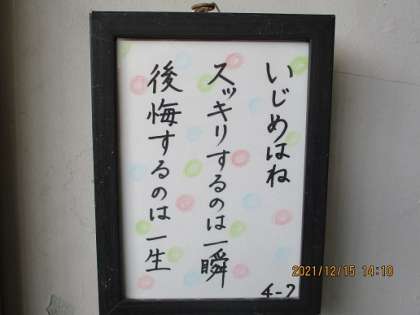 いじめはね
スッキリするのは一瞬
後悔するのは一生
4-7
2021/12/15 14:10